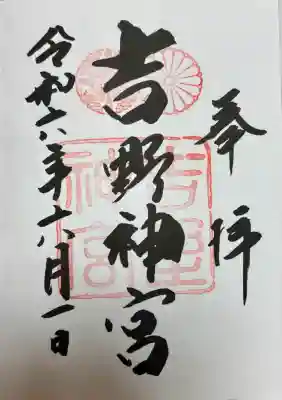 奉拝
吉野神宮
吉野
神宮
令和六年八月一日